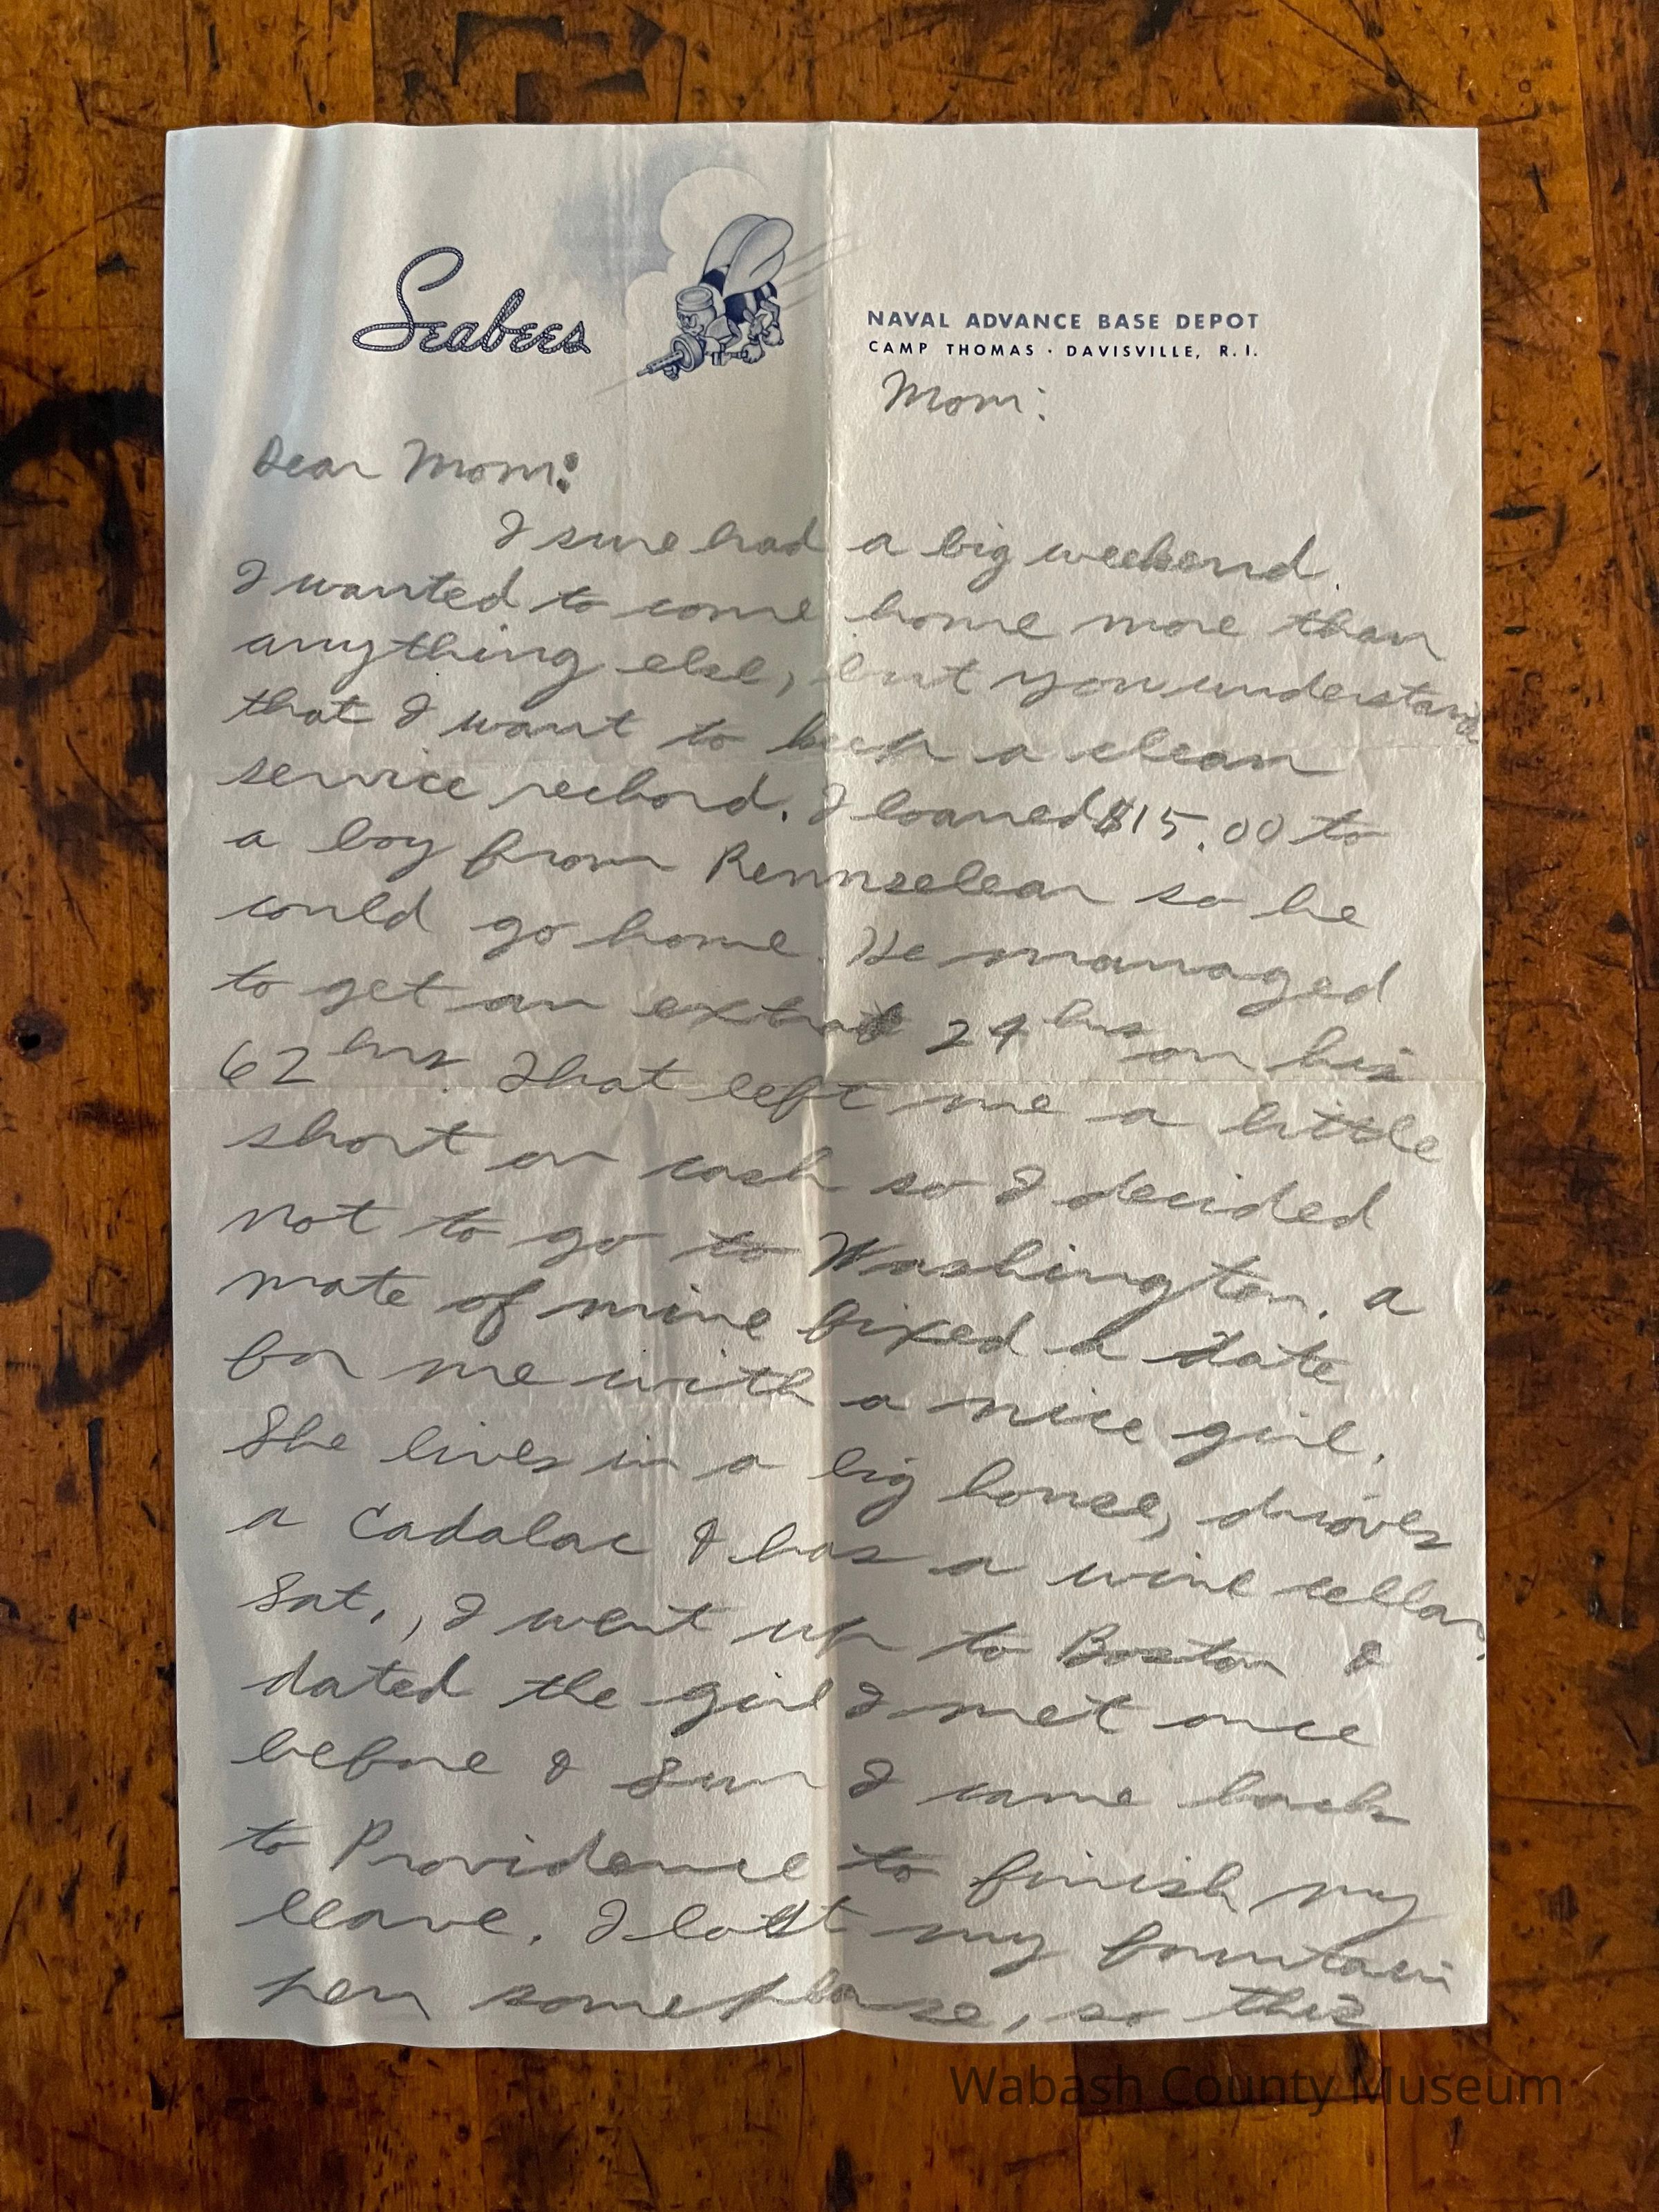 Seabees
NAVAL ADVANCE BASE DEPOT
CAMP THOMAS · DAVISVILLE, R.I.
Mom:
Dear Mom:
I sure had a big weekend.
I wanted to come home more than
anything else, but you understand
that I want to keep a clean
service rechord. I loaned $15.00 to
a boy from Rennselear so he
could go home. He managed
to get an extra 24 hrs on his
62 hrs. That left me a little
short on cash so I decided
not to go to Washington. A
mate of mine fixed a date
for me with a nice girl.
She lives in a big house, drives
a Cadalac & has a wine cellar.
Sat., I went up to Boston &
dated the girl I met once
before & Sun I came back
to Providence to finish my
leave. I lost my fountain
pen someplase, so this
Wabash County Museum